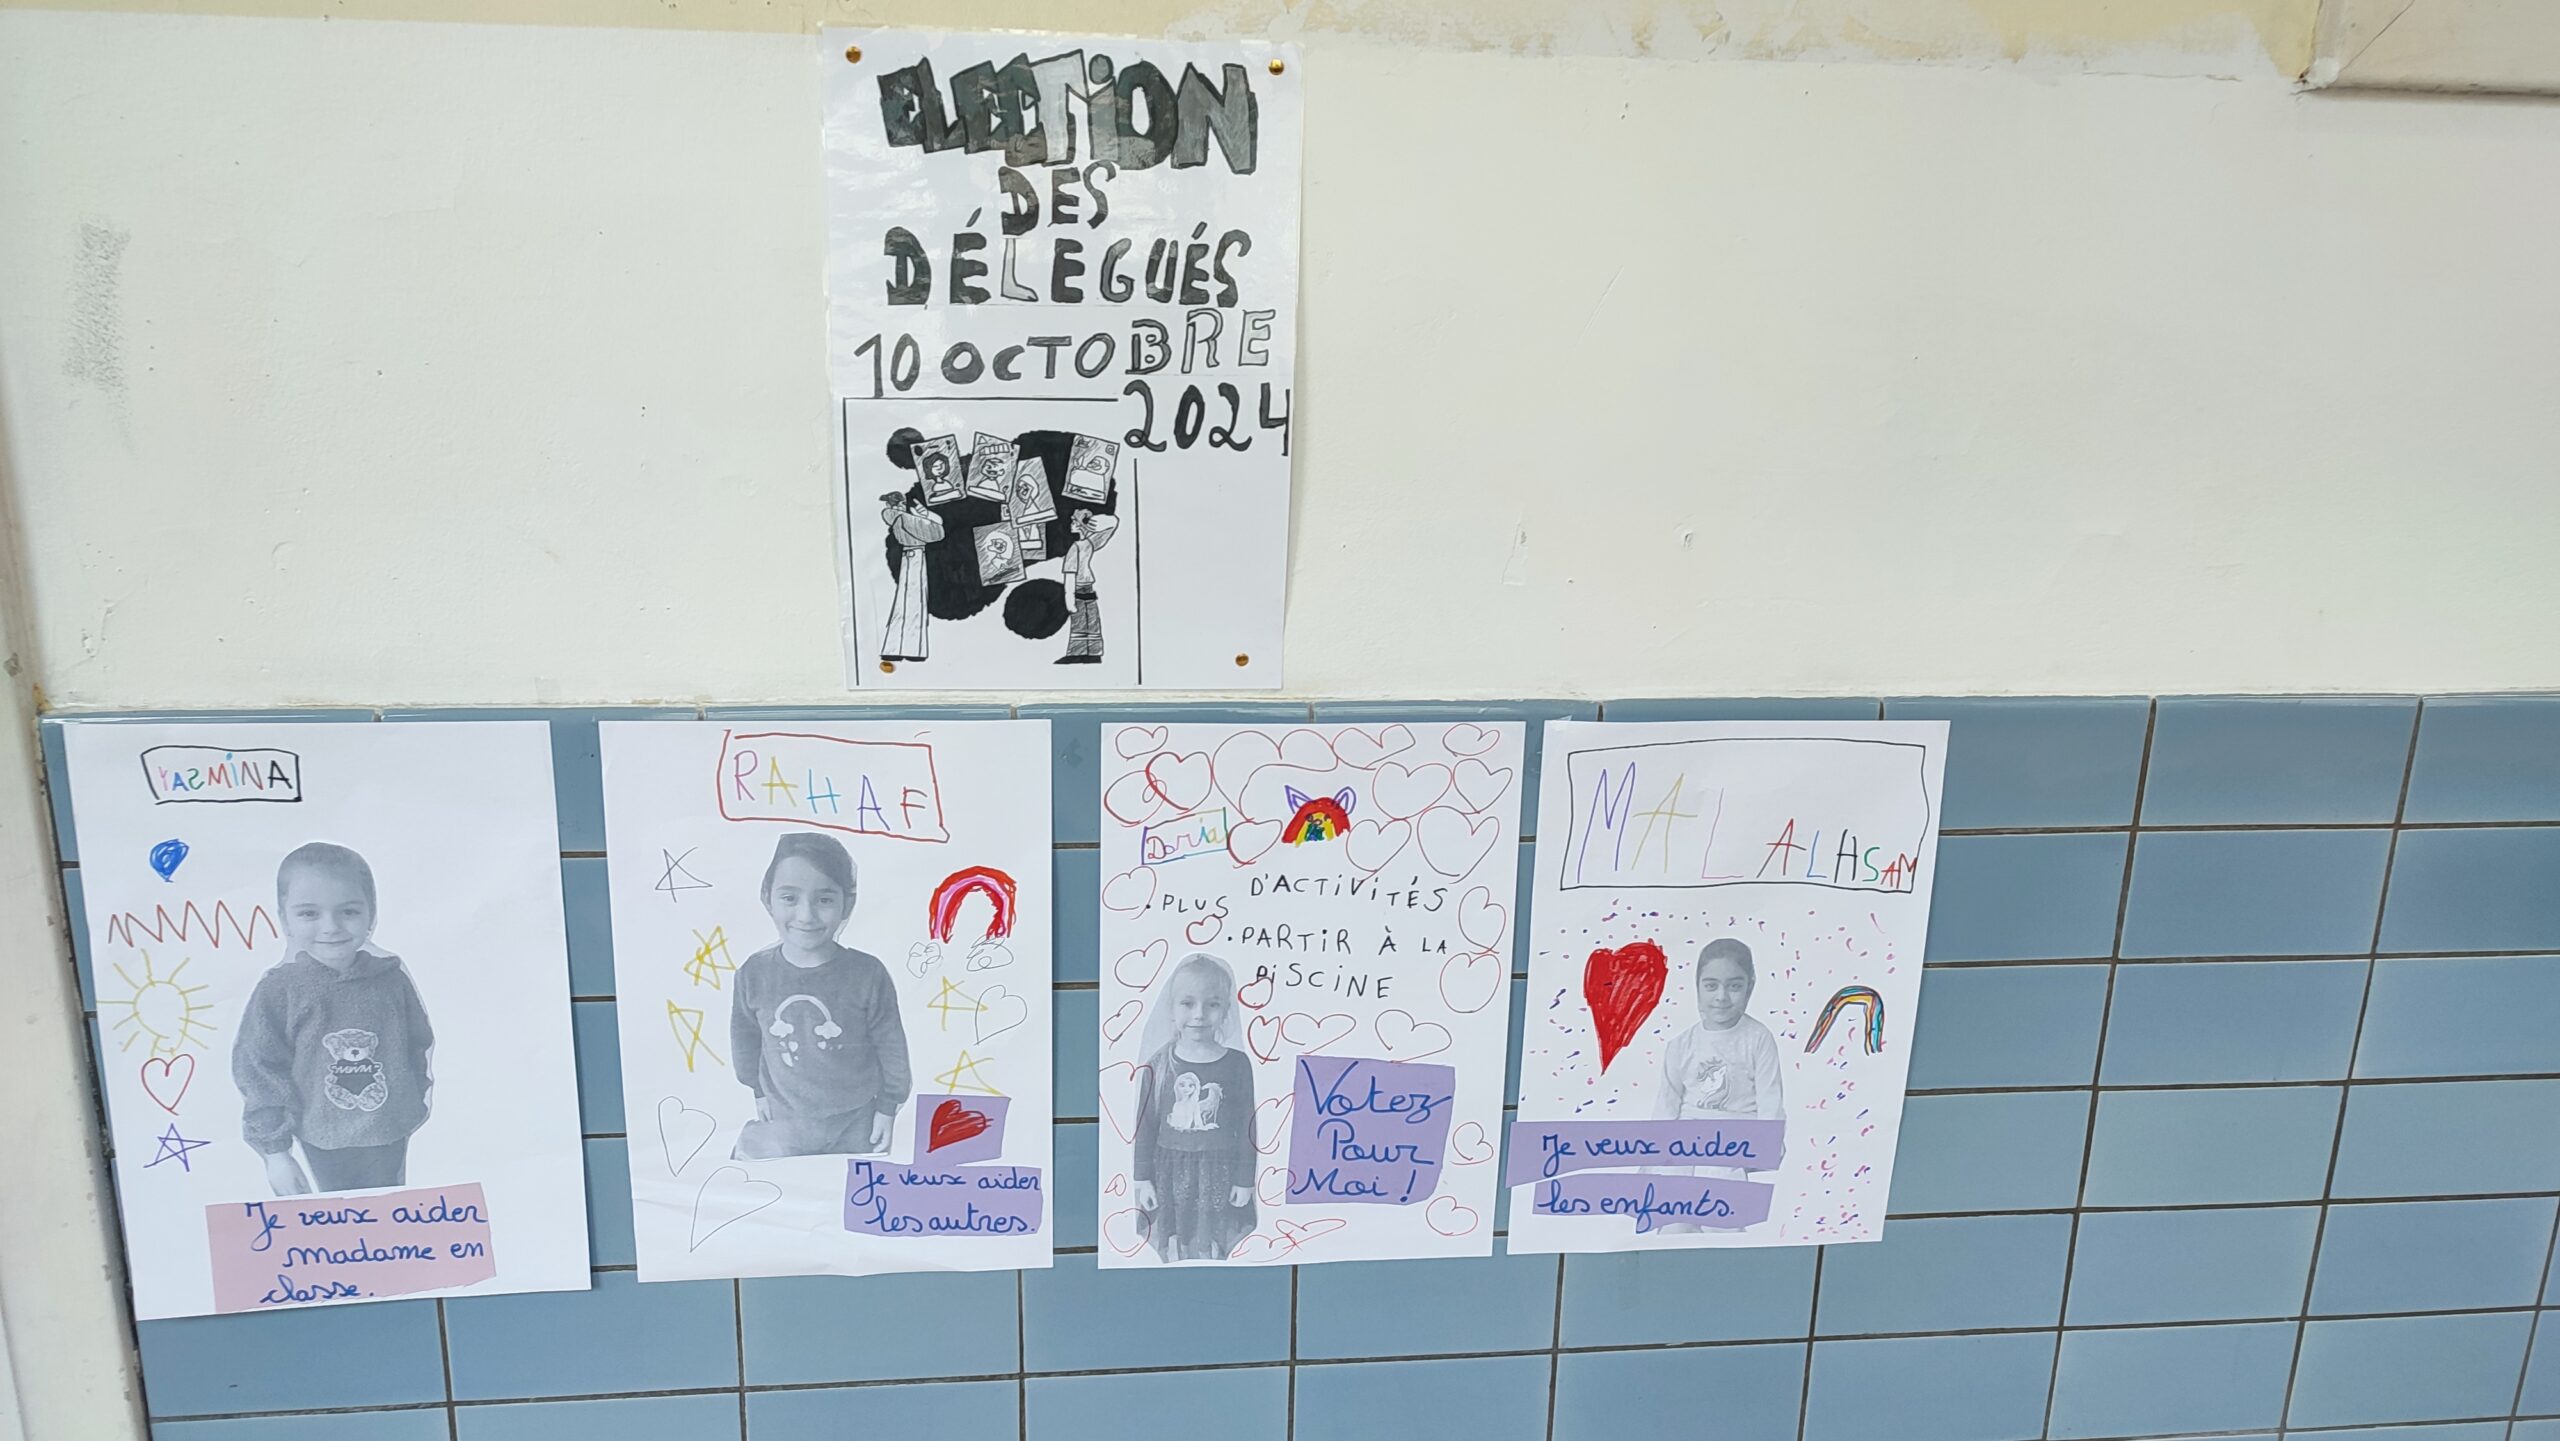 ELECTiON
DES
DÉLEGUÉS
10 OCTOBRE
2024
YASMINA
Je veux aider
madame en
classe.
RAHAF
Je veux aider
les autres.
Daria
. PLUS D'ACTiViTÉS
. PARTiR À LA
PiSCiNE
Votez
Pour
Moi !
MAL ALHSAM
Je veux aider
les enfants.